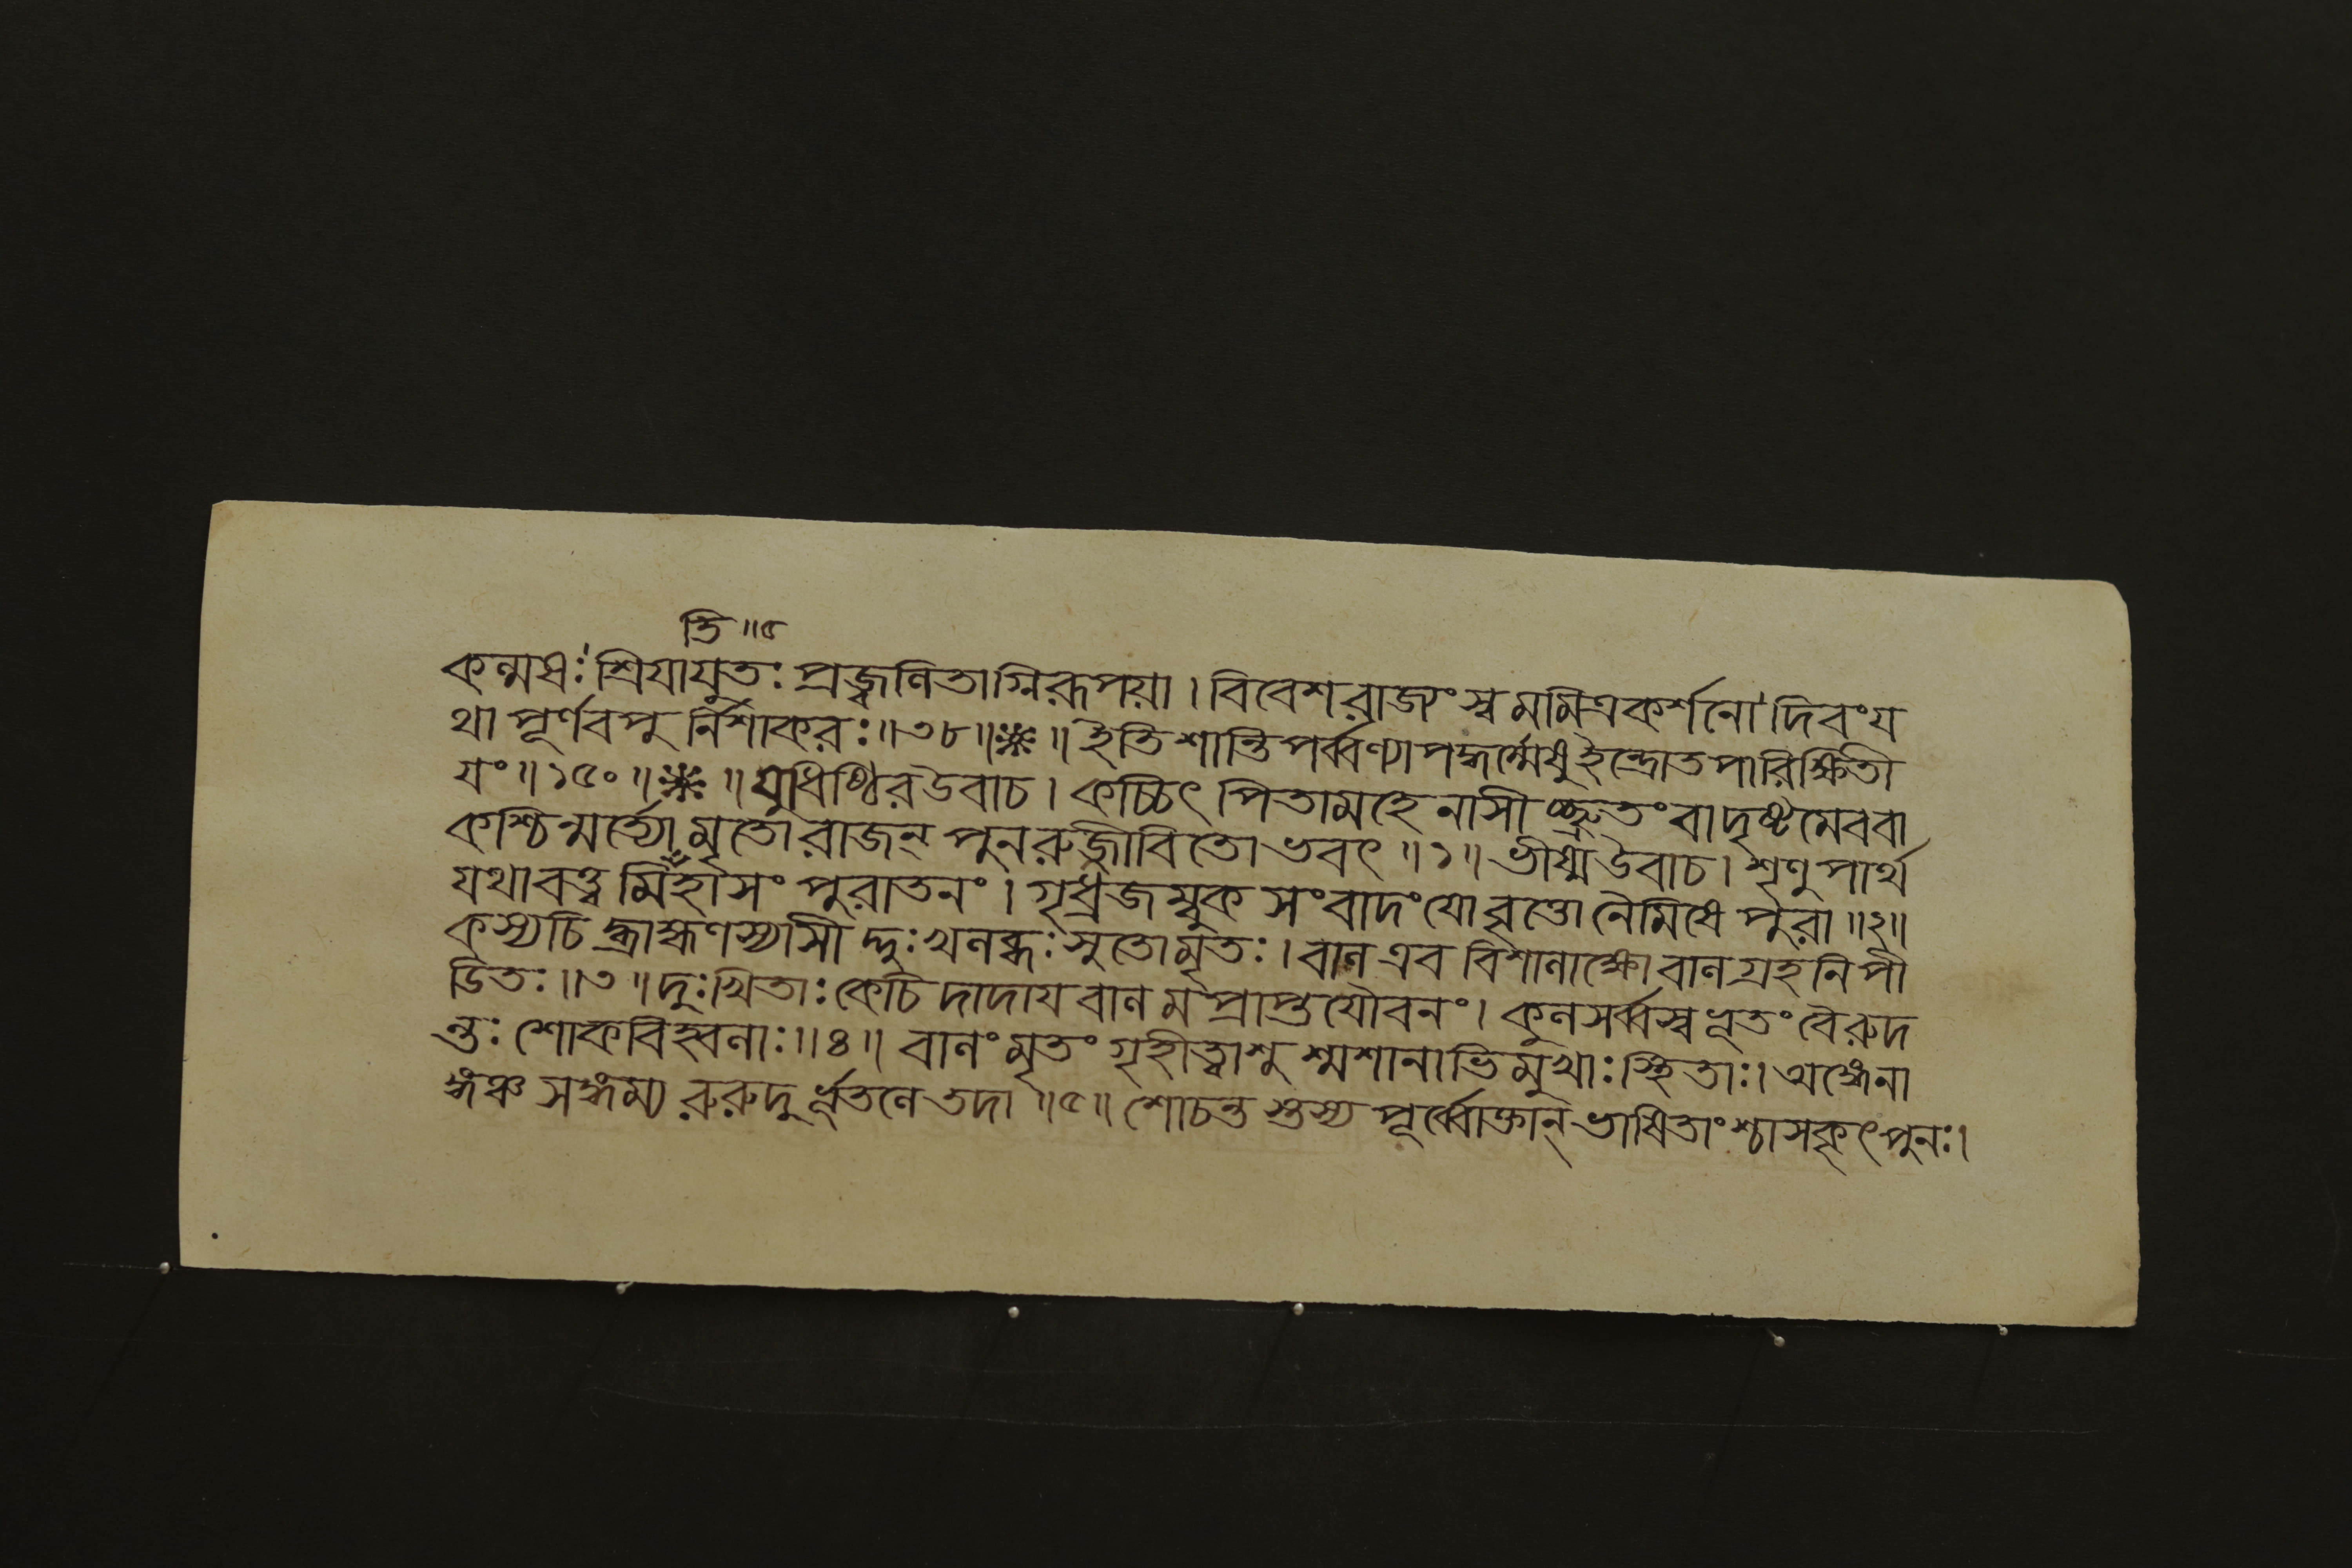 তি ॥৫
কল্মষঃ শ্রিযাযুতঃ প্রজ্বলিতাগ্নিরূপয়া । বিবেশরাজ্যং স্বমমিত্রকর্শনো দিবংয
থা পূর্ণবপু র্নিশাকরঃ ॥৩৮॥※॥ ইতি শান্তিপর্ব্বণ্যাপদ্ধর্ম্মেষু ইন্দ্রোতপারিক্ষিতী
যং ॥১৫০॥※॥ যুধিষ্ঠিরউবাচ । কচ্চিৎ পিতামহেনাসী চ্ছ্রুতংবাদৃষ্টমেববা
কশ্চিন্মর্ত্ত্যোমৃতোরাজন্ পুনরুজ্জীবিতোভবৎ ॥১॥ ভীষ্মউবাচ । শৃণুপার্থ
যথাবৃত্তমিহাসং পুরাতনং । গৃধ্রজম্বুকসংবাদংযোবৃত্তোনৈমিষে পুরা ॥২॥
কস্যচিদ্ব্রাহ্মণস্যাসী দ্দুঃখলব্ধঃসুতোমৃতঃ । বালএব বিশালাক্ষো বালগ্রহনিপী
ডিতঃ ॥৩॥ দুঃখিতাঃ কেচিদাদায বালমপ্রাপ্তযৌবনং । কুলসর্ব্বস্বভূতংবৈরুদ
ন্তঃ শোকবিহ্বলাঃ ॥৪॥ বালংমৃতং গৃহীত্বাশু শ্মশানাভিমুখাঃ স্থিতাঃ । অঙ্কেনা
ঙ্কঞ্চ সঙ্কম্য রুরুদুর্ভূতলেতদা ॥৫॥ শোচন্তস্তস্য পূর্ব্বোক্তান্ ভাষিতাংশ্চাসকৃৎপুনঃ ।